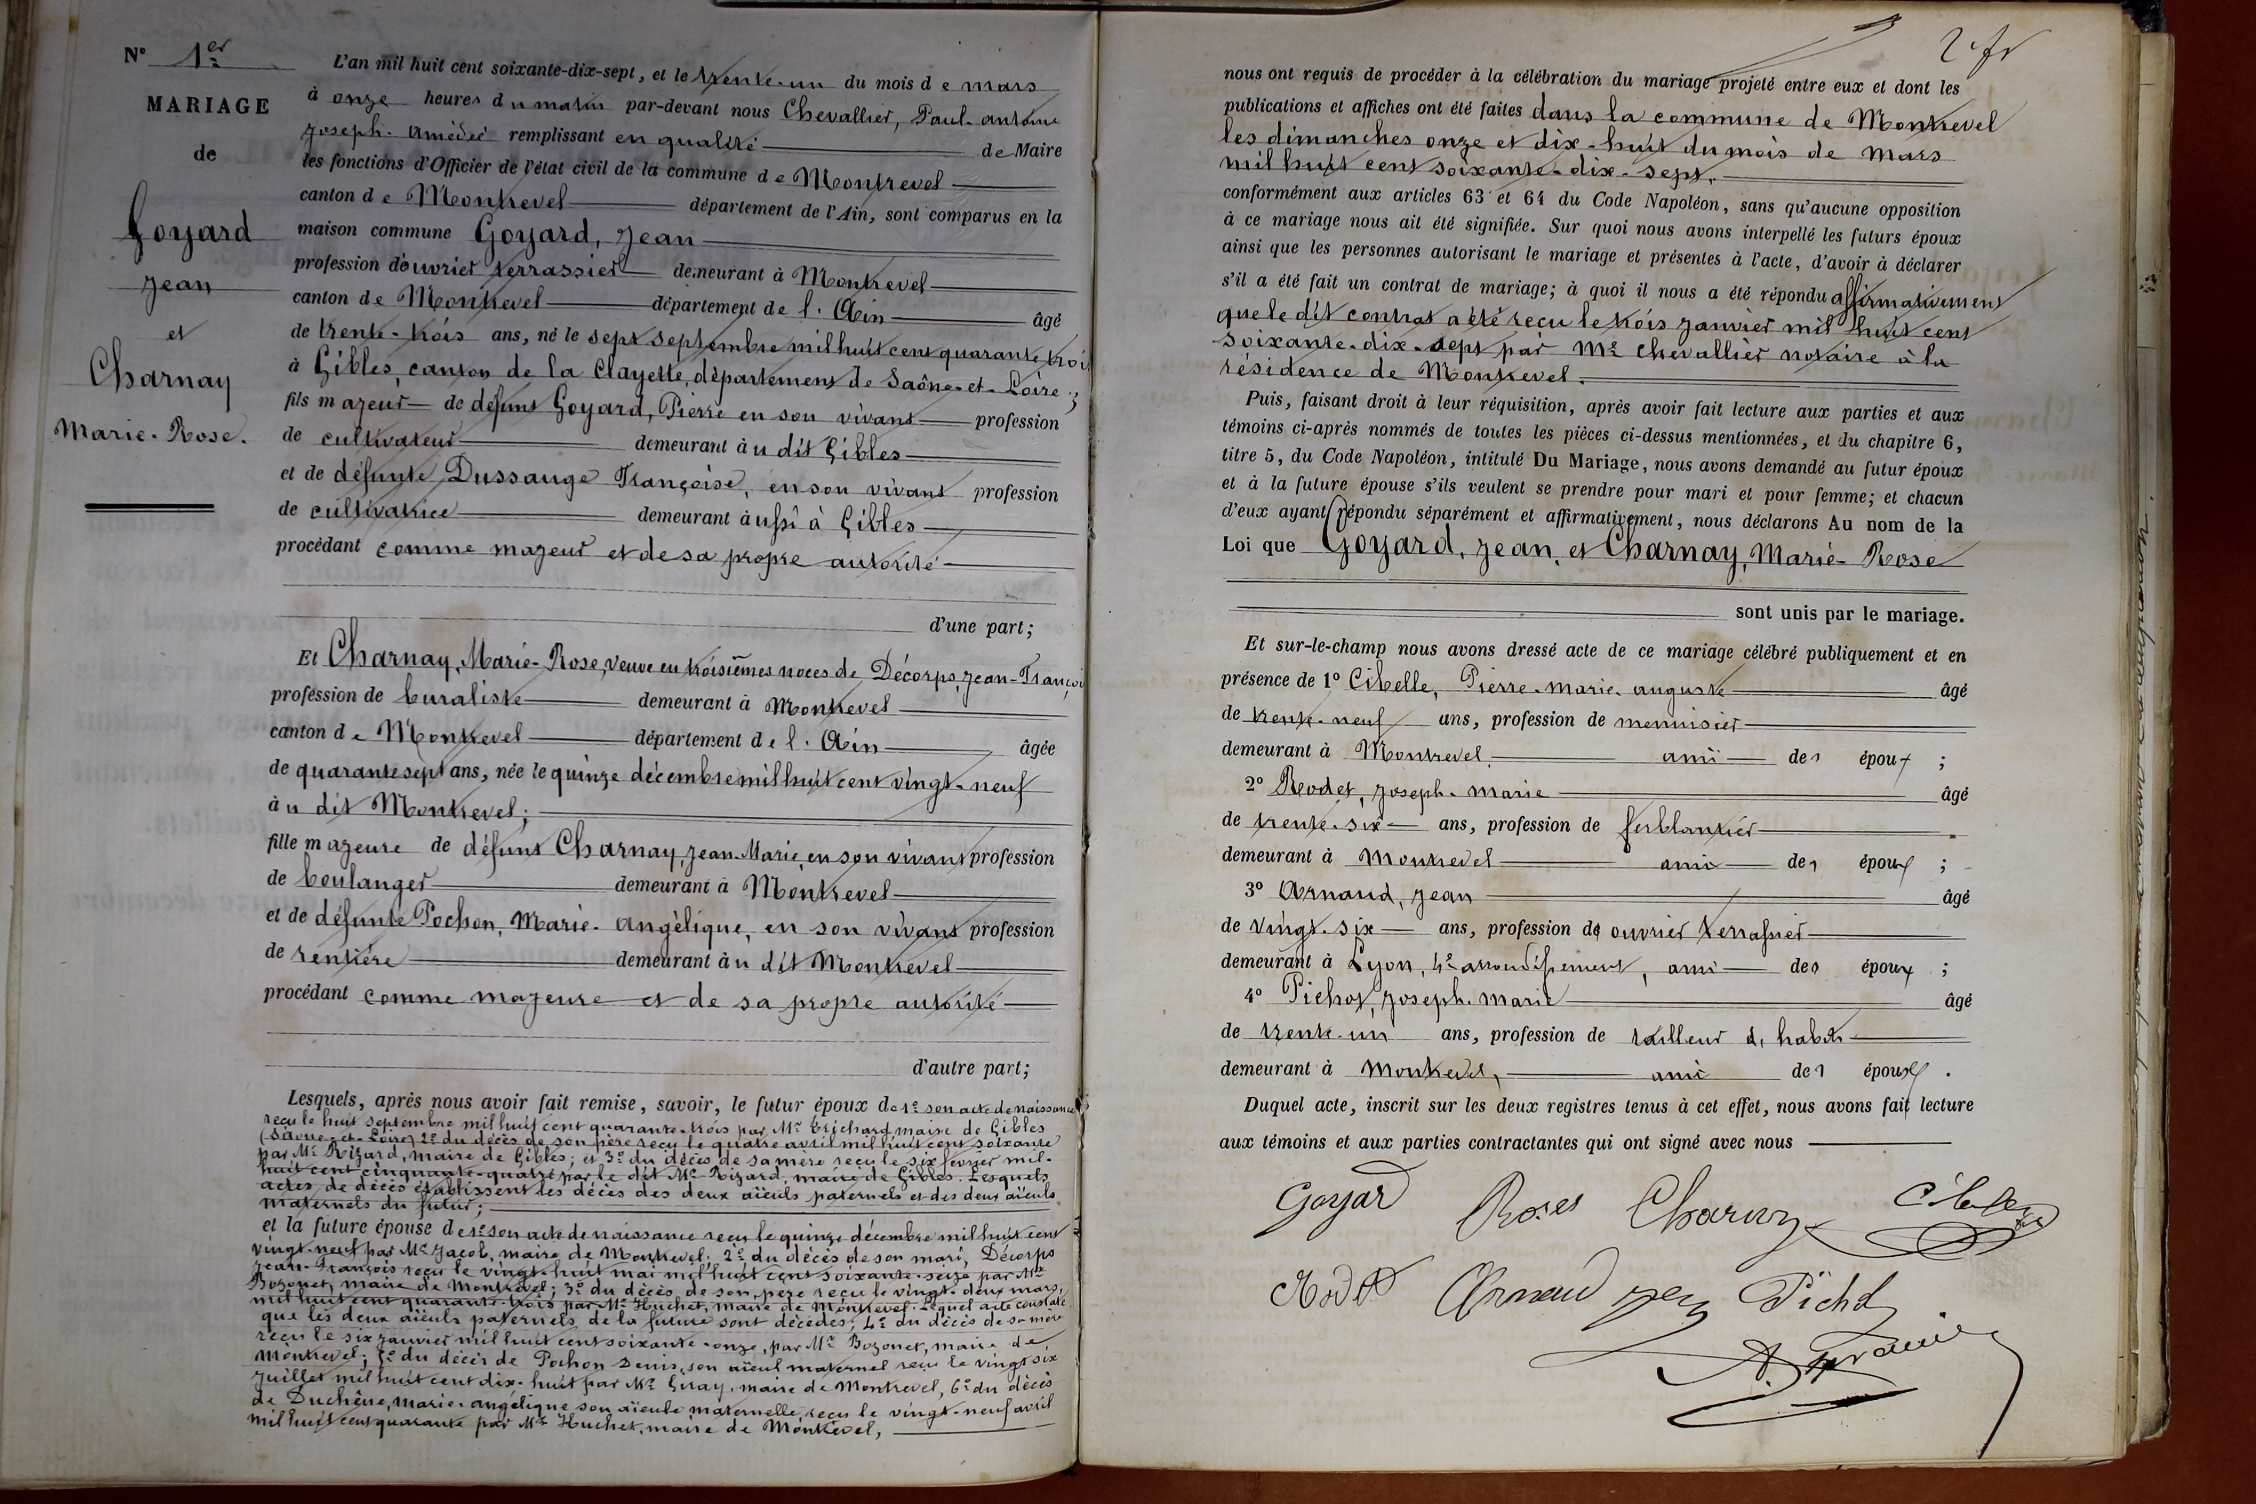 N° 1er
MARIAGE
de
Goyard
Jean
et
Charnay
Marie-Rose.
L'an mil huit cent soixante-dix-sept, et le trente-un du mois de mars
à onze heures du matin par-devant nous Chevallier, Paul-antoine
Joseph-Amédée remplissant en qualité de Maire
les fonctions d'Officier de l'état civil de la commune de Montrevel
canton de Montrevel département de l'Ain, sont comparus en la
maison commune Goyard, Jean
profession d'ouvrier terrassier demeurant à Montrevel
canton de Montrevel département de l'Ain âgé
de trente-trois ans, né le sept septembre mil huit cent quarante trois
à Gibles, canton de la Clayette, département de Saône-et-Loire;
fils majeur de défunt Goyard, Pierre en son vivant profession
de cultivateur demeurant à u dit Gibles
et de défunte Dussauge Françoise, en son vivant profession
de cultivatrice demeurant aussi à Gibles
procédant comme majeur et de sa propre autorité
d'une part;
Et Charnay, Marie-Rose, veuve en troisièmes noces de Décorps, Jean-François
profession de buraliste demeurant à Montrevel
canton de Montrevel département de l'Ain âgée
de quarante sept ans, née le quinze décembre mil huit cent vingt-neuf
à u dit Montrevel;
fille majeure de défunt Charnay, Jean-Marie, en son vivant profession
de boulanger demeurant à Montrevel
et de défunte Pochon, Marie-angélique, en son vivant profession
de rentière demeurant à u dit Montrevel
procédant comme majeure et de sa propre autorité
d'autre part;
Lesquels, après nous avoir fait remise, savoir, le futur époux de 1° son acte de naissance
reçu le huit septembre mil huit cent quarante-trois par Mr maire de Gibles
(Saône-et-Loire) 2° du décès de son père reçu le quatre avril mil huit cent soixante
par Mr Rizard, maire de Gibles; et 3° du décès de sa mère reçu le six février mil-
huit cent cinquante-quatre par le dit Mr Rizard, maire de Gibles. Lesquels
actes de décès établissent les décès des deux aïeuls paternels et des deux aïeuls
maternels du futur;
et la future épouse de 1° son acte de naissance reçu le quinze décembre mil huit cent
vingt-neuf par Mr Jacob, maire de Montrevel; 2° du décès de son mari, Décorps
Jean-François reçu le vingt-huit mai mil huit cent soixante-seize par Mr
Bozonet, maire de Montrevel; 3° du décès de son père reçu le vingt-deux mars,
mil huit cent quarante-trois par Mr Huchet, maire de Montrevel. Lequel acte constate
que les deux aïeuls paternels de la future sont décédés; 4° du décès de sa mère
reçu le six janvier mil huit cent soixante-onze, par Mr Bozonet, maire de
Montrevel; 5° du décès de Pochon Denis, son aïeul maternel reçu le vingt six
juillet mil huit cent dix-huit par Mr maire de Montrevel, 6° du décès
de Duchêne, marie-angélique son aïeule maternelle, reçu le vingt-neuf avril
mil huit cent quarante par Mr Huchet, maire de Montrevel,
nous ont requis de procéder à la célébration du mariage projeté entre eux et dont les
publications et affiches ont été faites dans la commune de Montrevel
les dimanches onze et dix-huit du mois de mars
mil huit cent soixante-dix-sept,
conformément aux articles 63 et 64 du Code Napoléon, sans qu'aucune opposition
à ce mariage nous ait été signifiée. Sur quoi nous avons interpellé les futurs époux
ainsi que les personnes autorisant le mariage et présentes à l'acte, d'avoir à déclarer
s'il a été fait un contrat de mariage; à quoi il nous a été répondu affirmativement
que le dit contrat a été reçu le trois janvier mil huit cent
soixante-dix-sept par Me Chevallier notaire à la
résidence de Montrevel.
Puis, faisant droit à leur réquisition, après avoir fait lecture aux parties et aux
témoins ci-après nommés de toutes les pièces ci-dessus mentionnées, et du chapitre 6,
titre 5, du Code Napoléon, intitulé Du Mariage, nous avons demandé au futur époux
et à la future épouse s'ils veulent se prendre pour mari et pour femme; et chacun
d'eux ayant répondu séparément et affirmativement, nous déclarons Au nom de la
Loi que Goyard, Jean, et Charnay, Marie-Rose
sont unis par le mariage.
Et sur-le-champ nous avons dressé acte de ce mariage célébré publiquement et en
présence de 1° Cibelle, Pierre-Marie-auguste âgé
de trente-neuf ans, profession de menuisier
demeurant à Montrevel, ami des époux;
2° Rodet, Joseph-Marie âgé
de trente-six ans, profession de ferblantier
demeurant à Montrevel ami des époux;
3° Arnaud, Jean âgé
de vingt-six ans, profession de ouvrier terrassier
demeurant à Lyon, 4e arrondissement, ami des époux;
4° Pichot, Joseph-Marie âgé
de trente-un ans, profession de tailleur d'habits
demeurant à Montrevel, ami des époux.
Duquel acte, inscrit sur les deux registres tenus à cet effet, nous avons fait lecture
aux témoins et aux parties contractantes qui ont signé avec nous
Goyard Roses Charnay Cibelle
Rodet Arnaud Jean Pichot